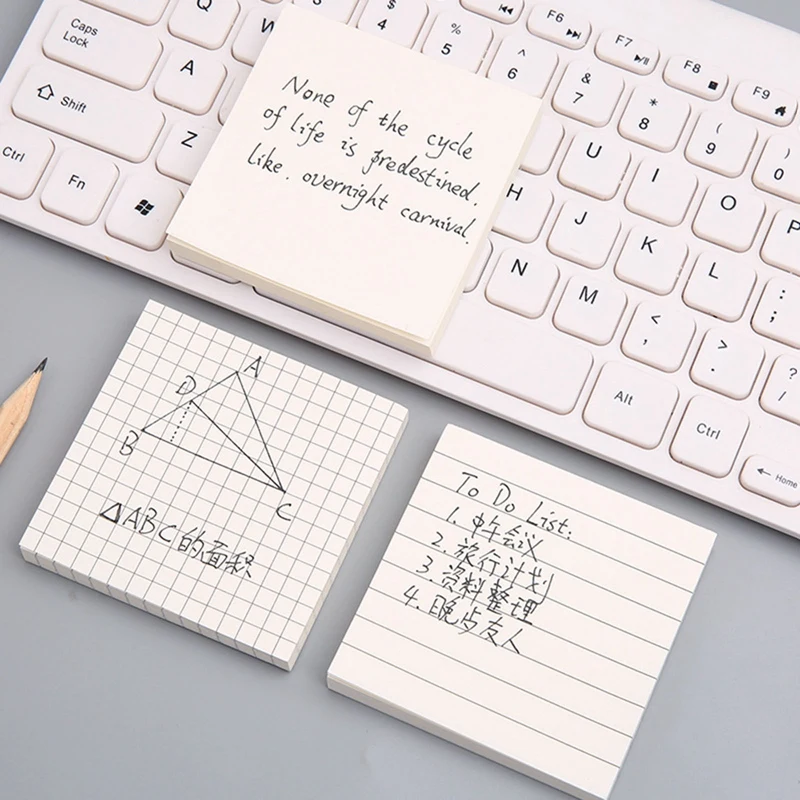 Caps Lock
Q
W
$ 4
% 5
^ 6
& 7
* 8
( 9
) 0
F6
F7
F8
F9
A
Shift
Z
U
I
O
P
Ctrl
Fn
H
J
K
L
: ;
N
M
< ,
> .
? /
Alt
Ctrl
Home
None of the cycle
of life is predestined.
like. overnight carnival.
A
D
B
C
△ABC的面积
To Do List:
1. 中午会议
2. 旅行计划
3. 资料整理
4. 晚点友人